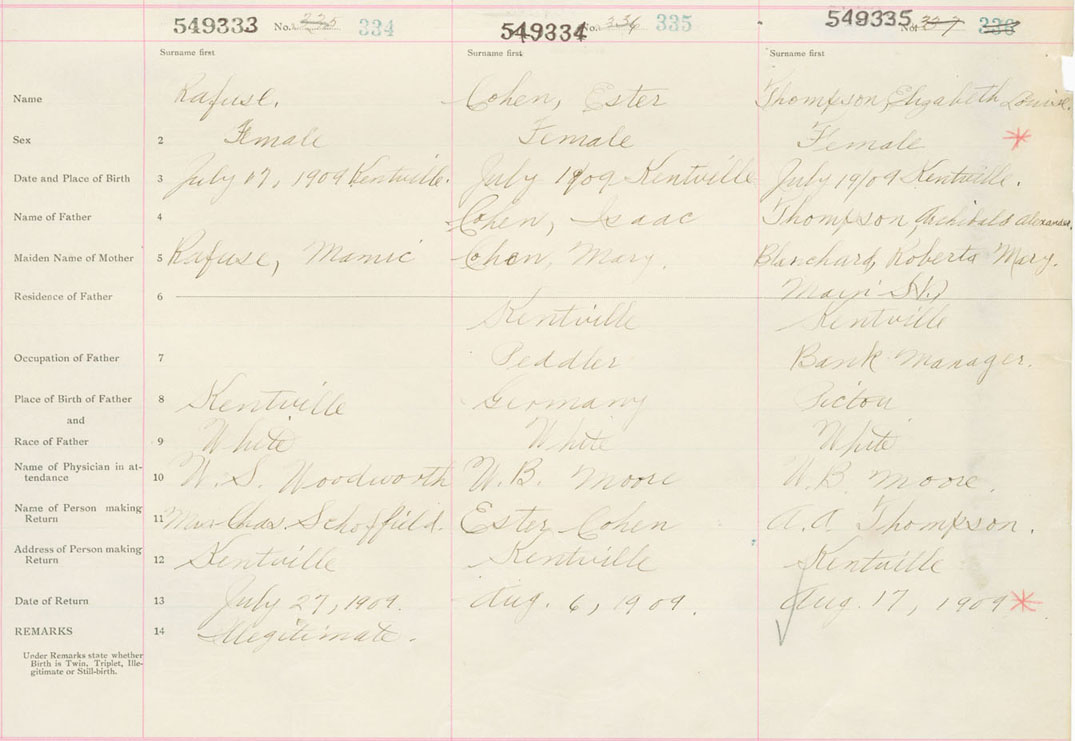 549333 No. 335 334 549334 No. 336 335 549335 No. 337 336
Surname first Surname first Surname first
Name Rafuse. Cohen, Ester Thompson, Elizabeth Louise.
Sex 2 Female Female Female
Date and Place of Birth 3 July 17, 1909 Kentville. July 1909 Kentville July 19/09 Kentville.
Name of Father 4 Cohen, Isaac Thompson, Archibald Alexander.
Maiden Name of Mother 5 Rafuse, Mamie Cohen, Mary. Blanchard, Roberta Mary.
Residence of Father 6 Main St.
Kentville Kentville
Occupation of Father 7 Peddler Bank Manager.
Place of Birth of Father 8 Kentville Germany Pictou
and
Race of Father 9 White White White
Name of Physician in at-
tendance 10 W. S. Woodworth W. B. Moore W. B. Moore.
Name of Person making
Return 11 Mrs Chas. Schoffield. Ester Cohen A. A. Thompson.
Address of Person making
Return 12 Kentville Kentville Kentville
Date of Return 13 July 27, 1909. Aug. 6, 1909. Aug. 17, 1909
REMARKS 14 Illegitimate.
Under Remarks state whether
Birth is Twin, Triplet, Ille-
gitimate or Still-birth.